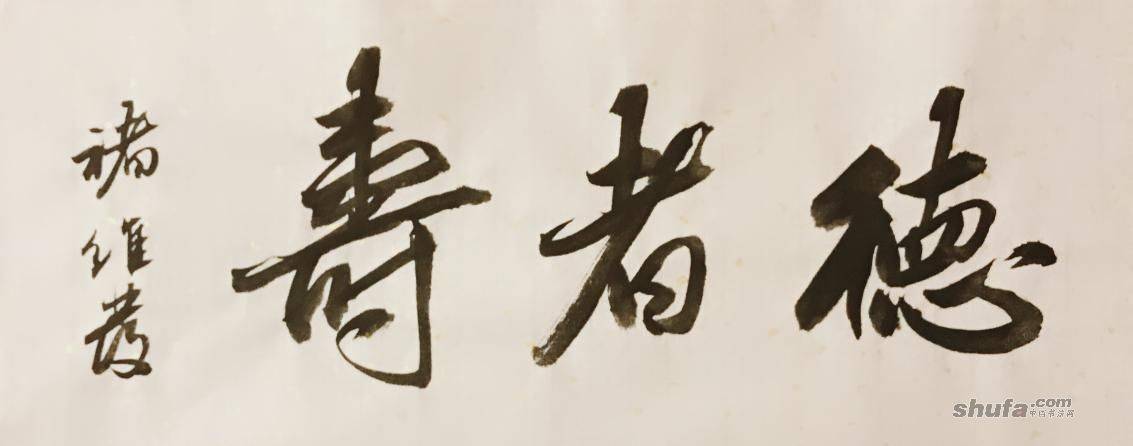 德者壽
褚維發
shufa.com
中国书法网